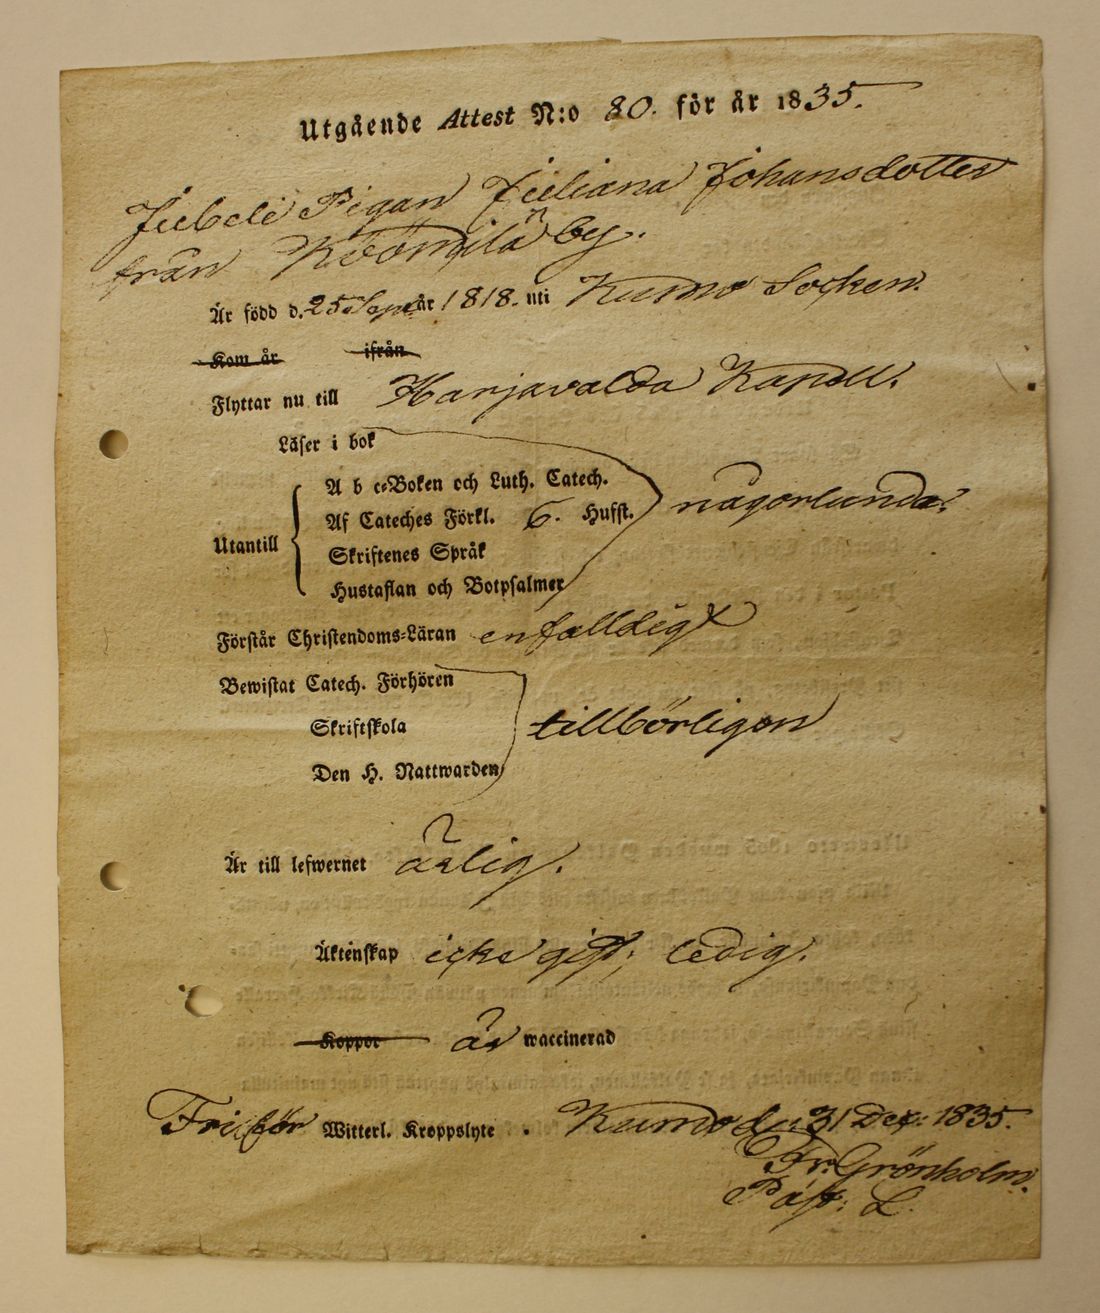 Utgående Attest N:o 80. för år 1835.
Pigan Juliana Johansdotter
från by.
Är född d. 25 Sept. år 1818. uti Kumo Socken.
Kom år ifrån
Flyttar nu till Harjavalda Kapell.
Läser i bok
A b c=Boken och Luth. Catech.
Af Cateches Förkl. 6. Hufst. någorlunda.
Utantill
Skriftenes Språk
Hustaflan och Botpsalmer
Förstår Christendoms=Läran enfalldigt
Bewistat Catech. Förhören
Skriftskola tillbörligen
Den H. Nattwarden
Är till lefwernet ärlig.
Äktenskap icke gift, ledig.
Koppor är waccinerad
Fri för Witterl. Kroppslyte. Kumo d. 31 Dec: 1835.
Fr: Grönholm.
Past: L.